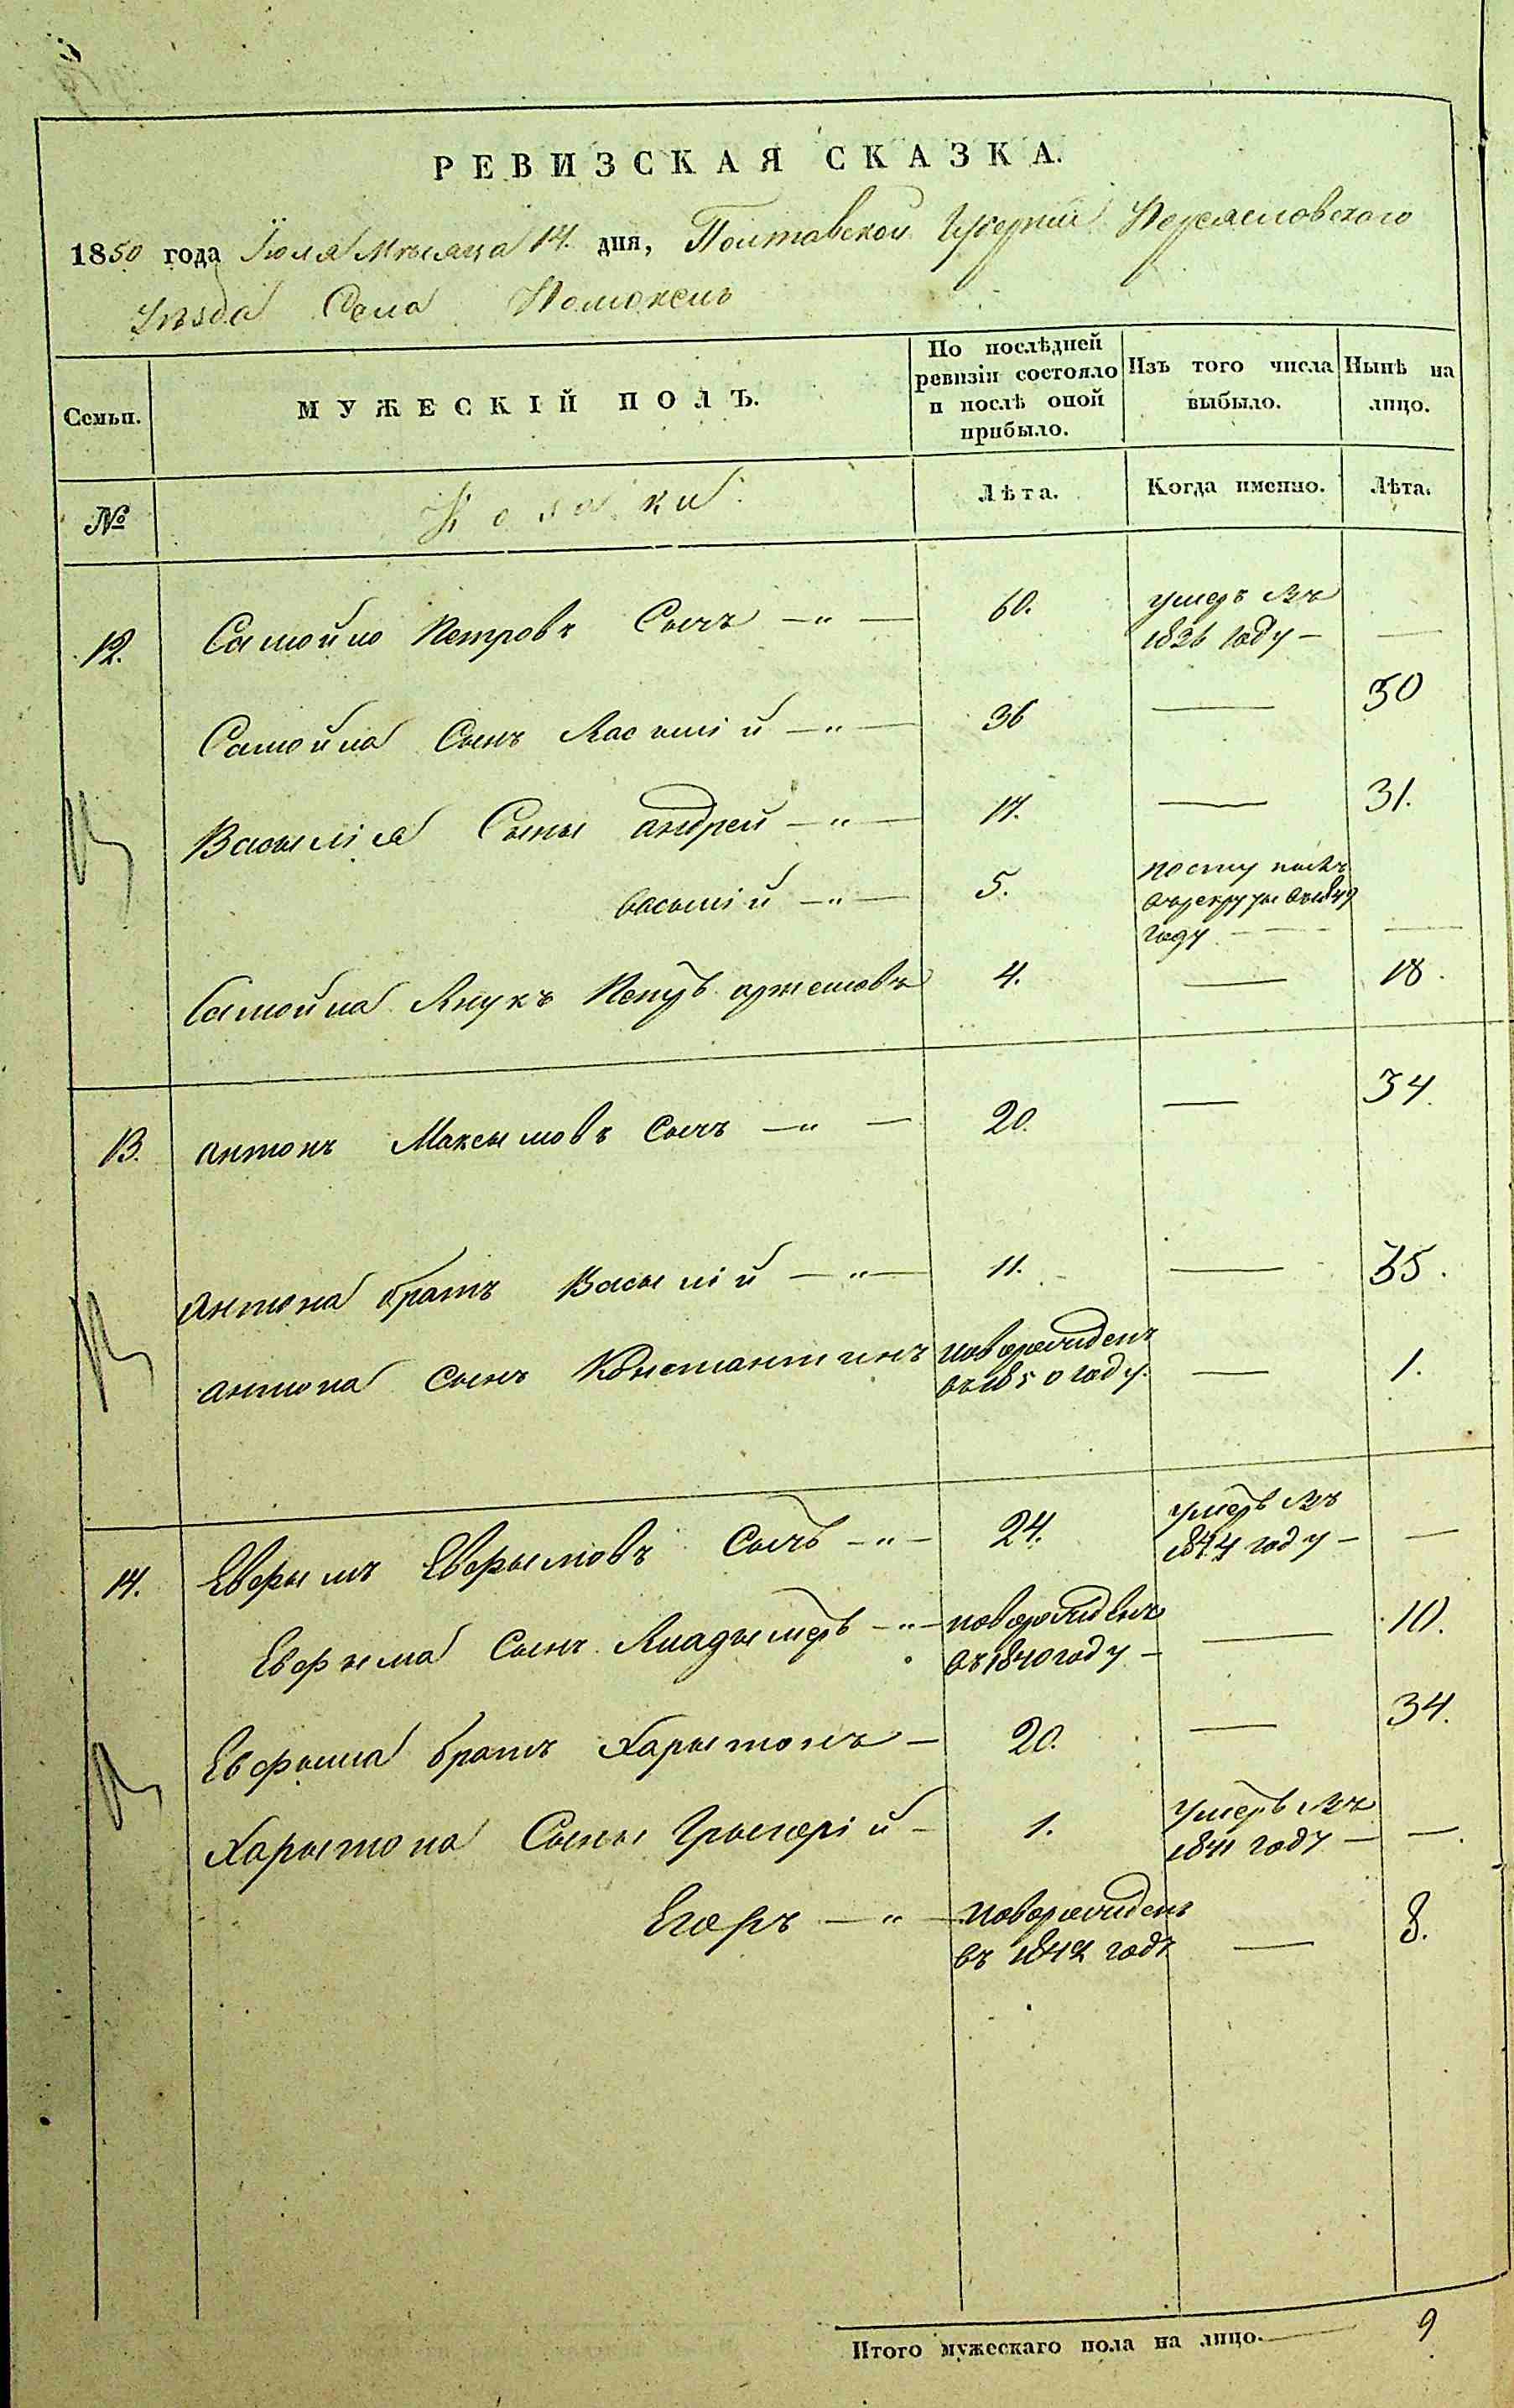 РЕВИЗСКАЯ СКАЗКА.
1850 года Іюля Мѣсяца 14. дня, Полтавской Губерніи Переясловскаго
Уѣзда Села Помокель
Семьи.
МУЖЕСКІЙ ПОЛЪ.
По послѣдней
ревизіи состояло
и послѣ оной
прибыло.
Изъ того числа
выбыло.
Нынѣ на
лицо.
№
Козаки
Лѣта.
Когда именно.
Лѣта.
12. Самойло Петровъ Сычъ —„— 60. умеръ въ
1836 году — —
Самойла Сынъ Василій —„— 36 — 50
Василія Сыны андрей —„— 17. — 31.
василій —„— 5. поступилъ
въ рекруты въ 1849
году — —
Самойла Внукъ Петръ артемовъ 4. — 18.
13. антонъ Максымовъ Сычъ —„— 20. — 34.
Антона братъ Васылій —„— 11. — 35.
антона сынъ Константинъ новорожденъ
въ 1850 году. — 1.
14. Евфымъ Евфымовъ Сычъ —„— 24. умеръ въ
1844 году — —
Евфыма сынъ Владымеръ —„— новорожденъ
въ 1840 году — — 10.
Евфыма братъ Харытонъ — 20. — 34.
Харытона Сыны Грыгорій — 1. умеръ въ
1841 году — —.
Егоръ —„— новорожденъ
въ 1842 годѣ — 8.
Итого мужескаго пола на лицо. — 9